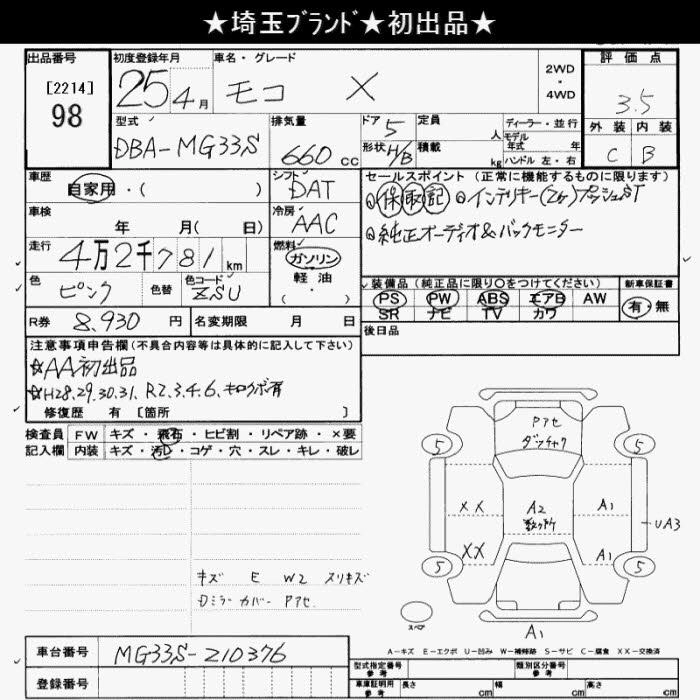 ★埼玉ﾌﾞﾗﾝﾄﾞ★初出品★
出品番号
[2214]
98
初度登録年月
25年4月
車名・グレード
モコ X
2WD
・
4WD
評価点
3.5
外装 内装
C B
型式
DBA-MG33S
排気量
660 cc
ドア 5
形状 H/B
定員 人
積載 kg
ディーラー・並行
モデル年式 年
ハンドル 左・右
車歴
自家用・( )
シフト
DAT
車検
年 月( 日)
冷房
AAC
走行
4万2千781 km
燃料
ガソリン
軽油
・( )
色
ピンク
色替
色コード
ZSU
R券 8,930 円
名変期限 月 日
セールスポイント (正常に機能するものに限ります)
◎保 取 記 ◎インテリキー(2ケ)プッシュST
◎純正オーディオ&バックモニター
装備品(純正品に限り○をつけてください)
PS PW ABS エアB AW
SR ナビ TV カワ
新車保証書
有・無
後日品
注意事項申告欄(不具合内容等は具体的に記入して下さい)
☆AA初出品
☆H28.29.30.31. R2.3.4.6. キロクボ有
修復歴 有 [箇所 ]
検査員
記入欄
FW キズ・飛石・ヒビ割・リペア跡・×要
内装 キズ・汚れ・コゲ・穴・スレ・キレ・破レ
キズ E W2 スリキズ
Dミラーカバー Pアセ
Pアセ
ダッチャク
5
5
5
5
XX
XX
A2
数ヶ所
A1
A1
UA3
A1
スペア
A-キズ E-エクボ U-凹み W-補修跡 S-サビ C-腐食 XX-交換済
車台番号 MG33S-210376
登録番号
型式指定番号 参考
類別区分番号 参考
車庫証明用 参考
長さ cm 幅 cm 高さ cm